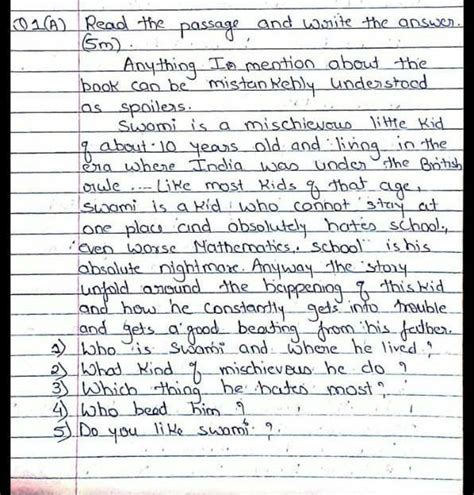 Q1(A) Read the passage and write the answer.
(5m)
Anything I mention about the
book can be mistankebly understood
as spoilers.
Swami is a mischievous little kid
of about 10 years old and living in the
era where India was under the British
rule .... Like most kids of that age,
Swami is a kid who connot stay at
one place and absolutely hates school,
even worse Mathematics. school is his
absolute nightmare. Anyway the story
unfold around the happening of this kid
and how he constantly gets into trouble
and gets a good beating from his father.
1) Who is Swami and where he lived?
2) What kind of mischievous he do ?
3) Which thing he hates most?
4) Who bead him ?
5) Do you like swami ?